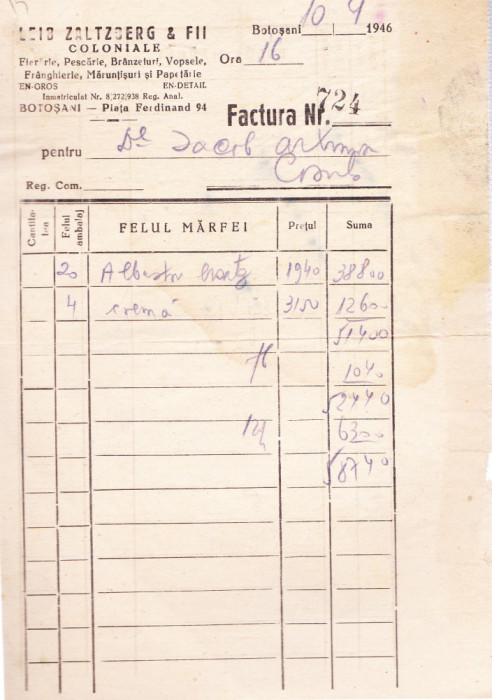 LEIB ZALTZBERG & FII
COLONIALE
Fierărie, Pescărie, Brânzeturi, Vopsele,
Frânghierie, Mărunțișuri și Papetărie
EN-GROS EN-DETAIL
Inmatriculat Nr. 8/272/938 Reg. Anal.
BOTOȘANI — Piața Ferdinand 94
Botoșani 10 4 1946
Ora 16
Factura Nr. 724
pentru Dl Iacob
Reg. Com.
Cantitatea Felul ambalaj FELUL MĂRFEI Prețul Suma
20 Albastru 1940 38800
4 cremă 3150 12600
51400
1040
52440
12% 6300
58740